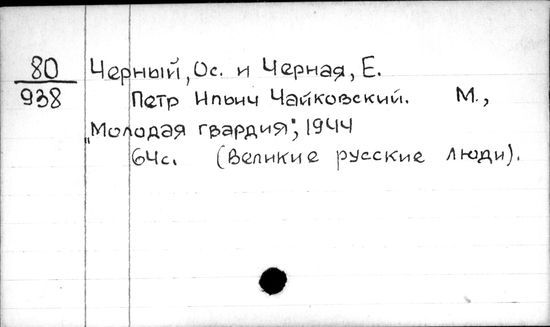 80 Черный, Ос. и Черная, Е.
938 Петр Ильич Чайковский. М.,
„Молодая гвардия", 1944
64с. (Великие русские люди).